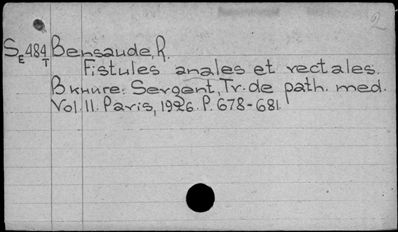 2
SE484T Bensaude, R.
Fistules anales et rectales.
В книге: Sergent, Tr. de path. med.
Vol. 11. Paris, 1926. P. 678-681.